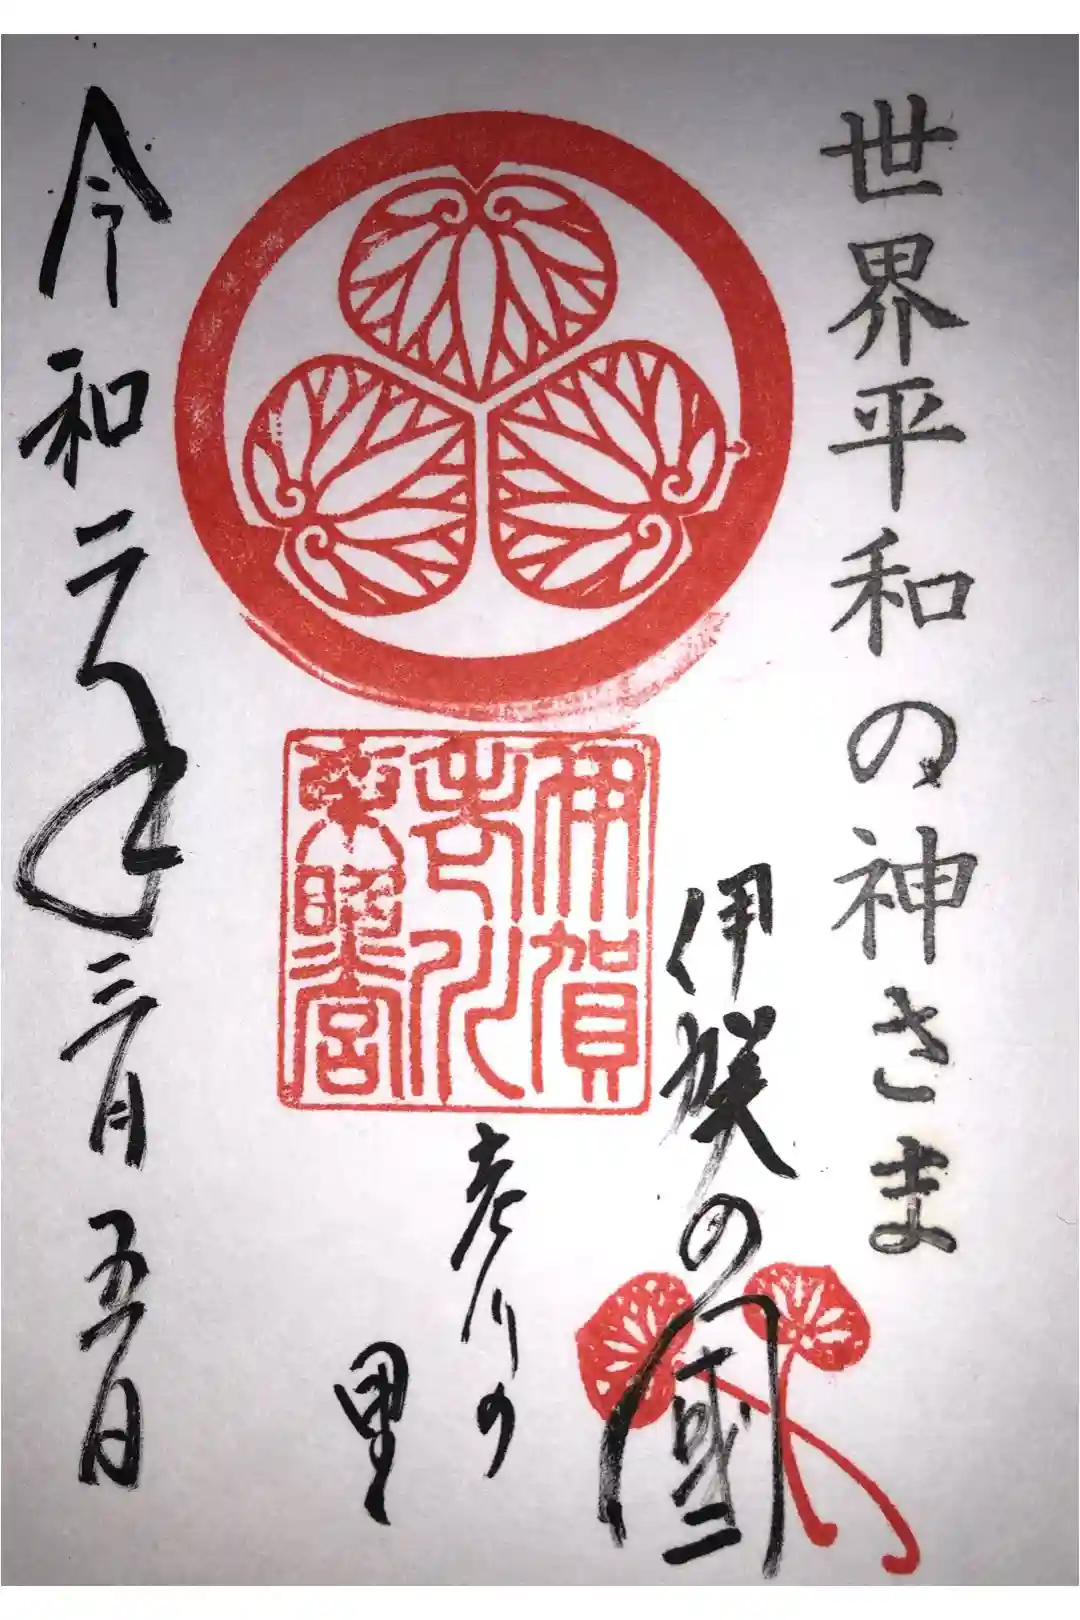 世界平和の神さま
伊賀の國
老川の里
伊賀
老川
東照宮
令和二年三月五日